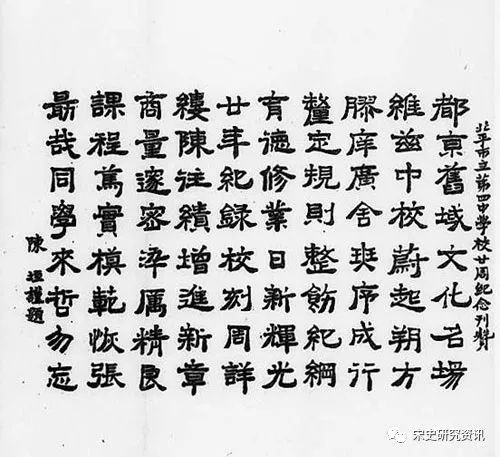 北平市立第四中学校廿周紀念刊贊
都京舊域文化名場
維茲中校蔚起朔方
膠庠廣舍班序成行
釐定規則整飭紀綱
育德修業日新輝光
廿年紀錄校刻周詳
縷陳往績增進新章
商量邃密淬厲精良
課程篤實模範恢張
勗哉同學來哲勿忘
陳垣謹題
宋史研究资讯